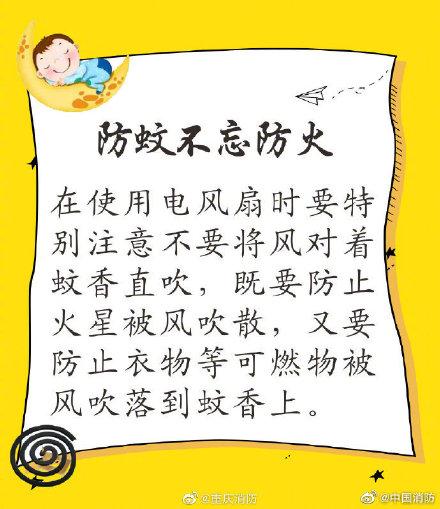 防蚊不忘防火
在使用电风扇时要特
别注意不要将风对着
蚊香直吹，既要防止
火星被风吹散，又要
防止衣物等可燃物被
风吹落到蚊香上。
@重庆消防
@中国消防